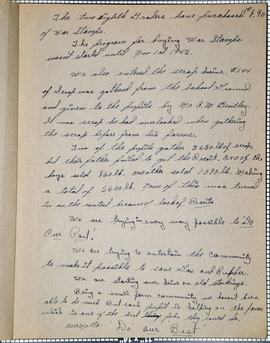 The two Eighth Graders have purchased $8.90
of War Stamps.
The program for buying War Stamps
wasn't started until Nov 1st 1942.
We also entered the scrap drive. #
of Scrap was gathered from the school Ground
and given to the pupils by Mr. Bentley.
It was scrap he had overlooked when gathering
the scrap before from his farms.
Two of the pupils gather 3650 lb of scrap
but their father failed to get the Receit. One of the
boys sold 860 lb. another sold 1090 lb. Making
a total of 5600 lb. None of this was turned
in on the contest because of lack of Receits.
We are trying in every way possible to "Do
Our Part."
We are trying to entertain the Community
to make it possible to save Gas and Rubber.
We are starting our drive on old stockings.
Being a small farm community we haven't been
able to do most But each pupil is helping on the farms
which is one of the best they could do.
Do our Best